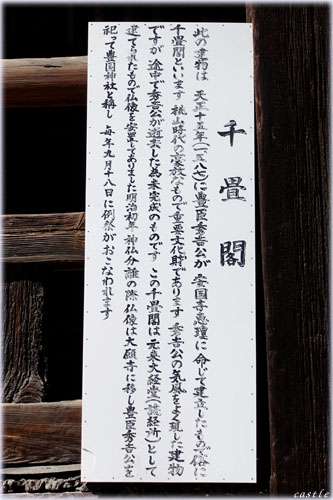 千畳閣
此の建物は 天正十五年(一五八七)に豊臣秀吉公が 安国寺恵瓊に 命じて建立したもので俗に
千畳閣といいます 桃山時代の豪放なもので重要文化財であります 秀吉公の気風をよく現した建物
ですが 途中で秀吉公が逝去した為未完成のものです この千畳閣は元来大経堂(読経所)として
建てられたもので仏像を安置してありました明治初年 神仏分離の際仏像は大願寺に移し豊臣秀吉公を
祀って豊国神社と称し 毎年九月十八日に例祭がおこなわれます
castle